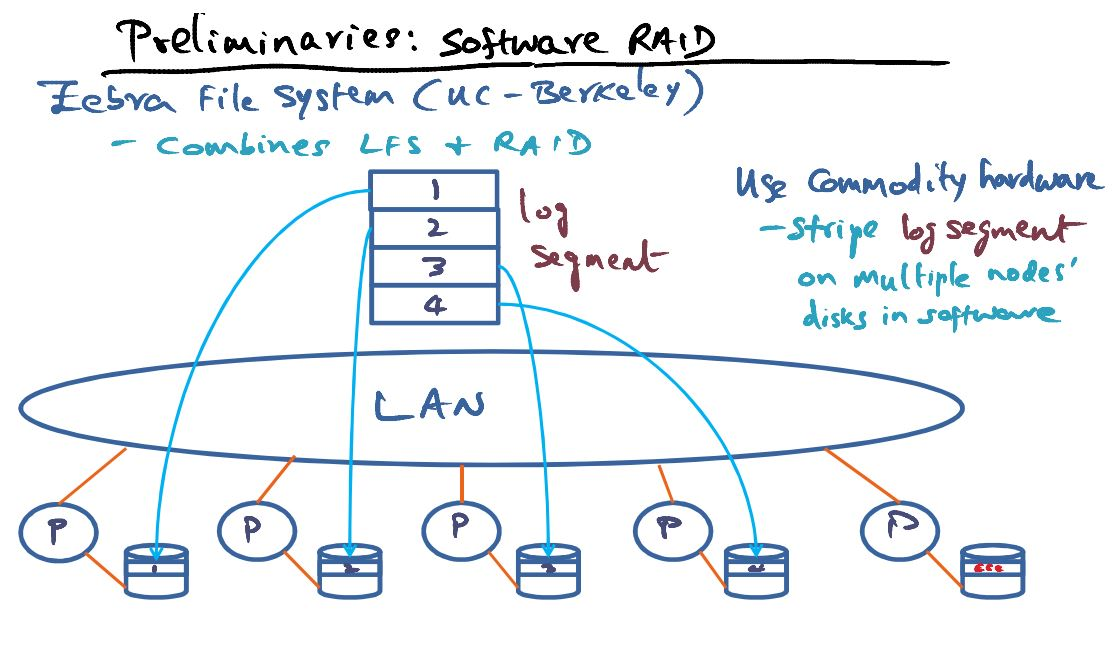 Preliminaries: Software RAID
Zebra File System (UC-Berkeley)
- Combines LFS + RAID
1
2
3
4
log
segment
Use Commodity hardware
- stripe log segment
on multiple nodes'
disks in software
LAN
P P P P P
1 2 3 4 ECC